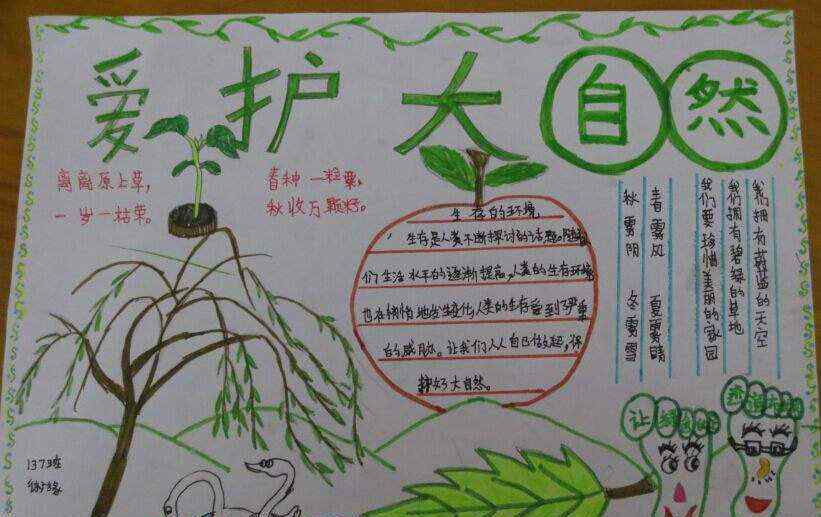 爱护大自然
离离原上草，
一岁一枯荣。
春种一粒粟，
秋收万颗籽。
生存的环境
生存是人类不断探讨的话题。随着
们生活水平的逐渐提高，人类的生存环境
也在悄悄地发生变化，人类的生存受到了严重
的威胁。让我们人人自己做起，保
护好大自然。
我们拥有蔚蓝的天空
我们拥有碧绿的草地
我们要珍惜美丽的家园
春雾风 夏雾晴
秋雾阴 冬雾雪
137班
让